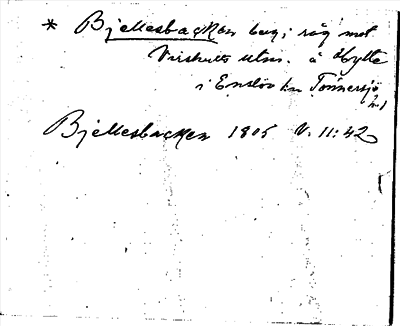 * Bjellesbacken berg, i råg mot
Virshults utm. å Hylte
i Enslöv sn Tönnersjö
hd
Bjellesbacken 1805 V. 11:42